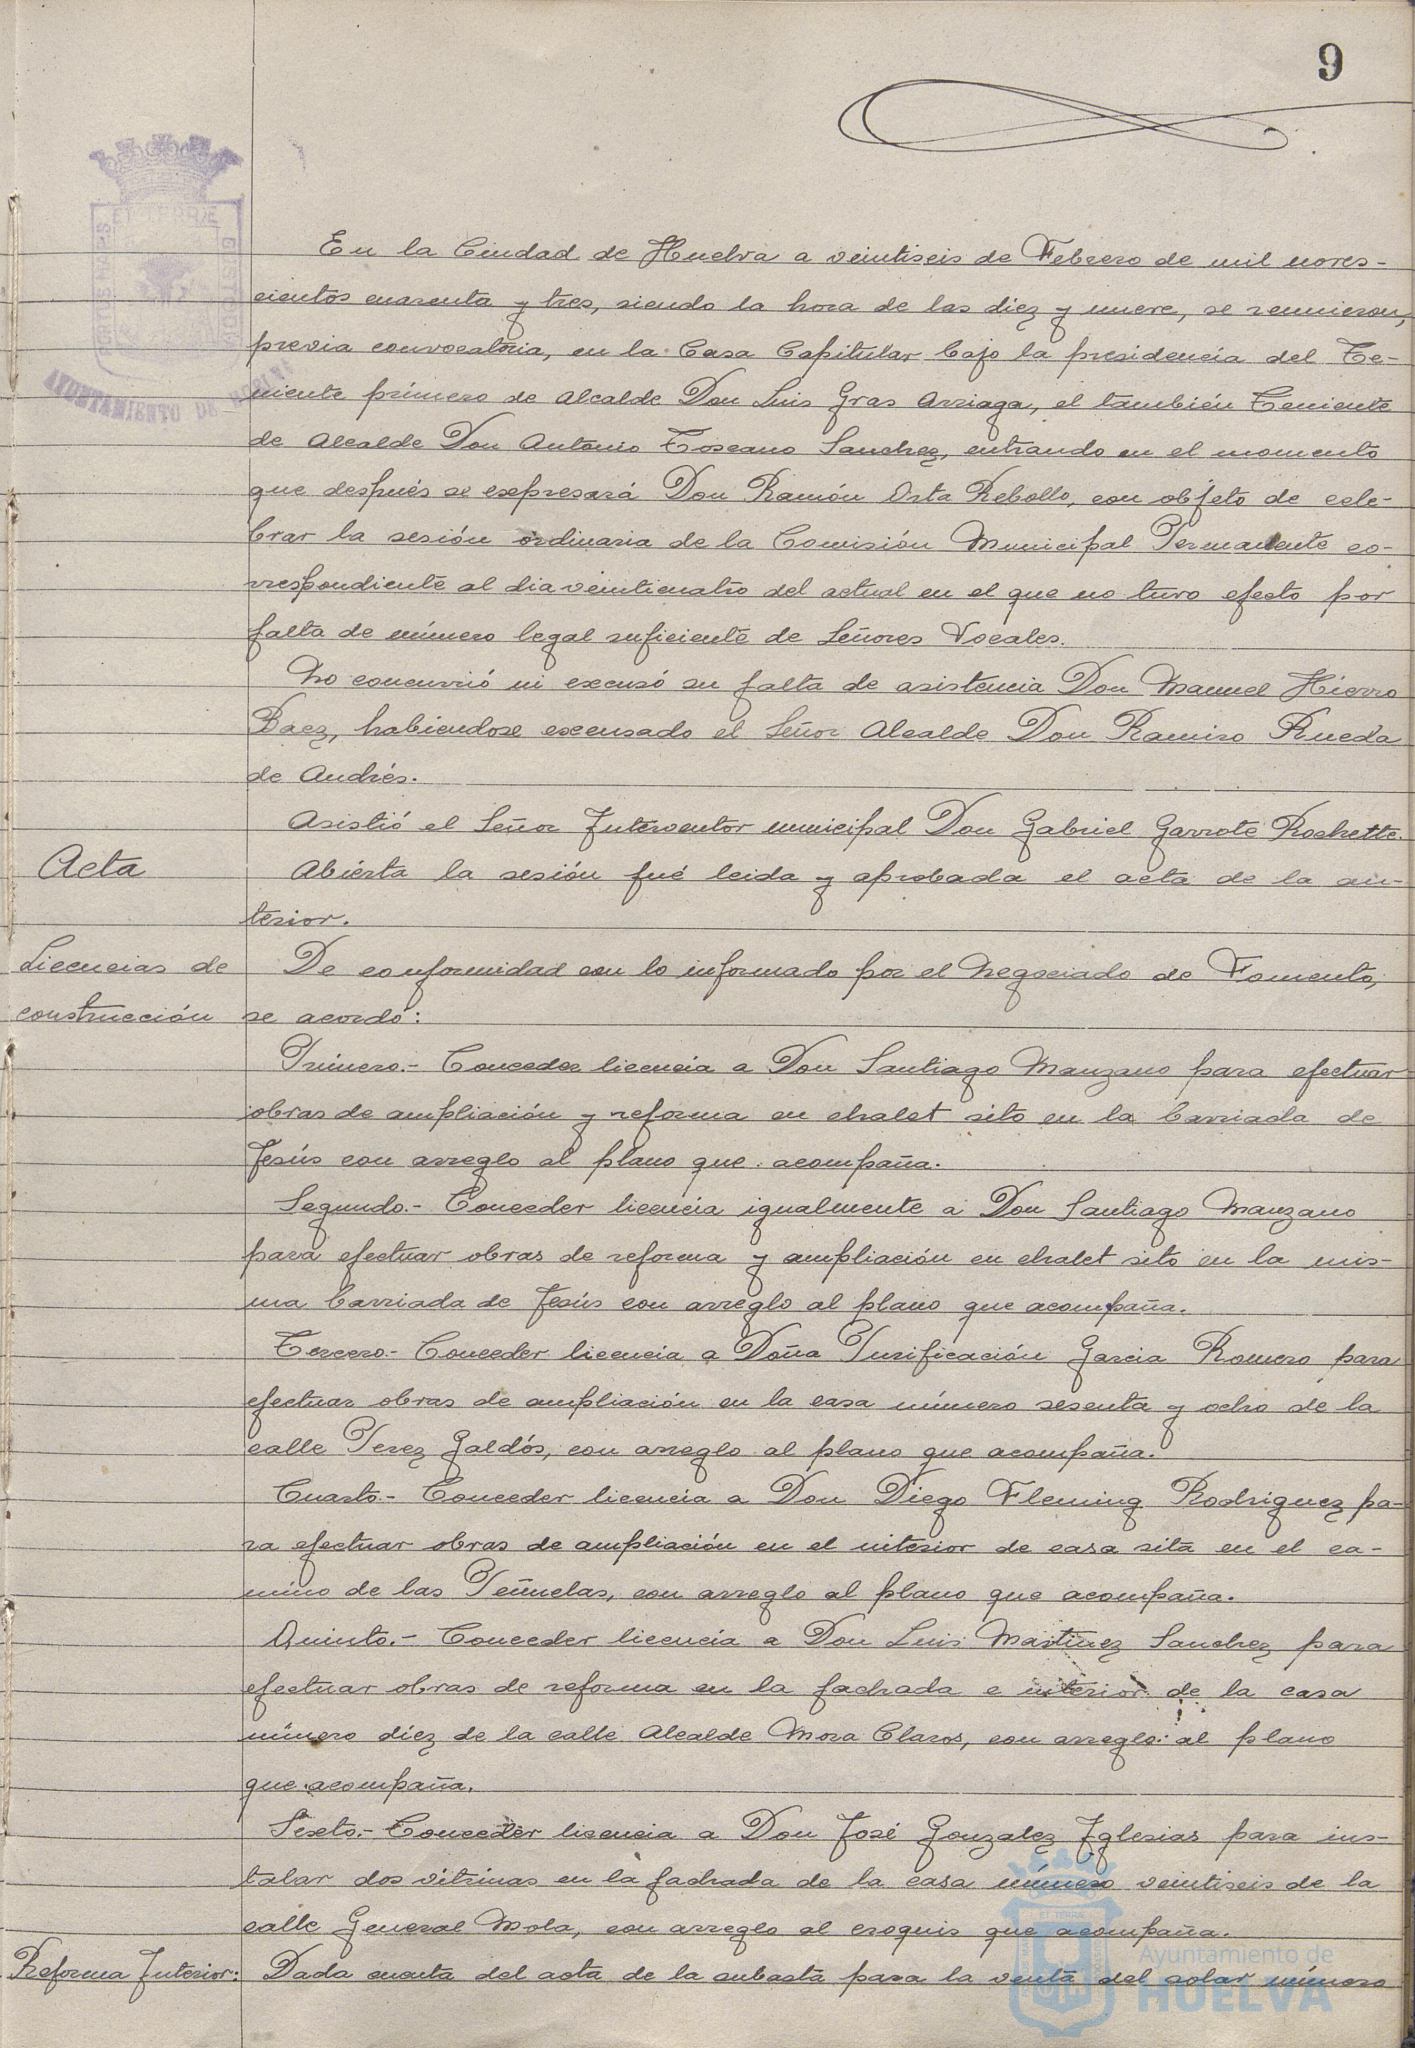 9
PORTUS MARIS ET TERRÆ CUSTODIA
AYUNTAMIENTO DE HUELVA
En la Ciudad de Huelva a veintiseis de Febrero de mil noves-
cientos cuarenta y tres, siendo la hora de las diez y nueve, se reunieron,
previa convocatoria, en la Casa Capitular bajo la presidencia del Te-
niente primero de Alcalde Don Luis Gras Arriaga, el también Teniente
de Alcalde Don Antonio Toscano Sanchez, entrando en el momento
que después se expresará Don Ramón Orta Rebollo, con objeto de cele-
brar la sesión ordinaria de la Comisión Municipal Permanente co-
rrespondiente al dia veinticuatro del actual en el que no tuvo efecto por
falta de número legal suficiente de Señores Vocales.
No concurrió ni excusó su falta de asistencia Don Manuel Hierro
Baez, habiendose excusado el Señor Alcalde Don Ramiro Rueda
de Andrés.
Asistió el Señor Interventor municipal Don Gabriel Garrote Rochette.
Acta
Abierta la sesión fué leida y aprobada el acta de la an-
terior.
Licencias de
construcción
De conformidad con lo informado por el Negociado de Fomento,
se acordó:
Primero.- Conceder licencia a Don Santiago Manzano para efectuar
obras de ampliación y reforma en chalet sito en la barriada de
Jesús con arreglo al plano que acompaña.
Segundo.- Conceder licencia igualmente a Don Santiago Manzano
para efectuar obras de reforma y ampliación en chalet sito en la mis-
ma barriada de Jesús con arreglo al plano que acompaña.
Tercero.- Conceder licencia a Doña Purificación Garcia Romero para
efectuar obras de ampliación en la casa número sesenta y ocho de la
calle Perez Galdós, con arreglo al plano que acompaña.
Cuarto.- Conceder licencia a Don Diego Fleming Rodriguez pa-
ra efectuar obras de ampliación en el interior de casa sita en el ca-
mino de las Peñuelas, con arreglo al plano que acompaña.
Quinto.- Conceder licencia a Don Luis Martinez Sanchez para
efectuar obras de reforma en la fachada e interior de la casa
número diez de la calle Alcalde Mora Claros, con arreglo al plano
que acompaña.
Sexto.- Conceder licencia a Don José Gonzalez Iglesias para ins-
talar dos vitrinas en la fachada de la casa número veintiseis de la
calle General Mola, con arreglo al croquis que acompaña.
Reforma Interior:
Dada cuenta del acta de la subasta para la venta del solar número
Ayuntamiento de
HUELVA